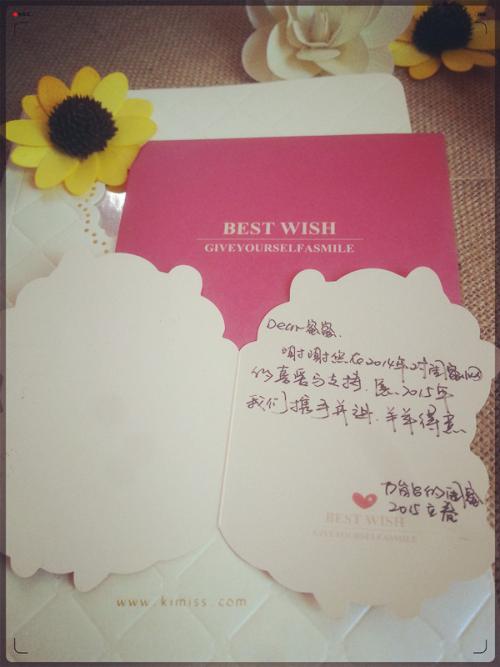 BEST WISH
GIVEYOURSELFASMILE
Dear 蜜蜜.
谢谢您在2014年对闺蜜网
的喜爱与支持.愿.2015年
我们携手并进.羊羊得意
万能的闺蜜
2015 立春
BEST WISH
GIVEYOURSELFASMILE
www.kimiss.com